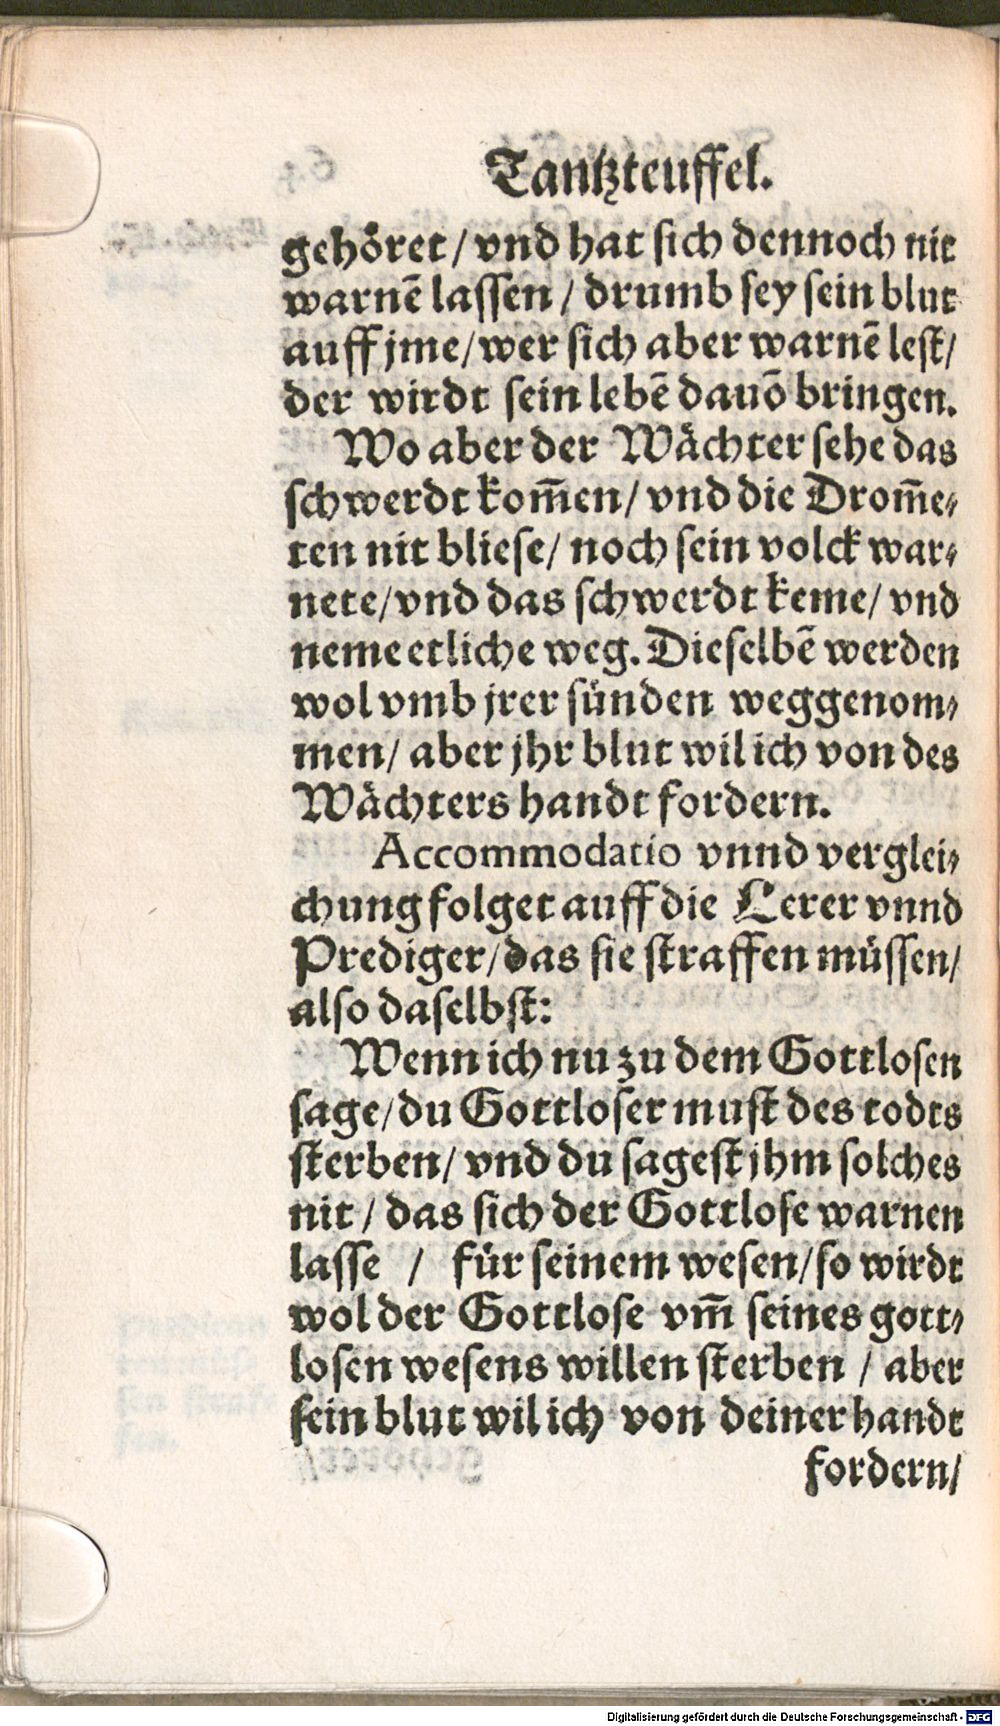 Tantzteuffel.
gehöret / vnd hat sich dennoch nit
warnē lassen / drumb sey sein blut
auff jme / wer sich aber warnē lest /
der wirdt sein lebē dauō bringen.
Wo aber der Wächter sehe das
schwerdt kom̄en / vnd die Drom̄e⸗
ten nit bliese / noch sein volck war⸗
nete / vnd das schwerdt keme / vnd
neme etliche weg. Dieselbē werden
wol vmb jrer sünden weggenom⸗
men / aber jhr blut wil ich von des
Wächters handt fordern.
Accommodatio vnnd verglei⸗
chung folget auff die Lerer vnnd
Prediger / das sie straffen müssen /
also daselbst:
Wenn ich nu zu dem Gottlosen
sage / du Gottloser must des todts
sterben / vnd du sagest jhm solches
nit / das sich der Gottlose warnen
lasse / für seinem wesen / so wirdt
wol der Gottlose vm̄ seines gott⸗
losen wesens willen sterben / aber
sein blut wil ich von deiner handt
fordern /
Digitalisierung gefördert durch die Deutsche Forschungsgemeinschaft - DFG